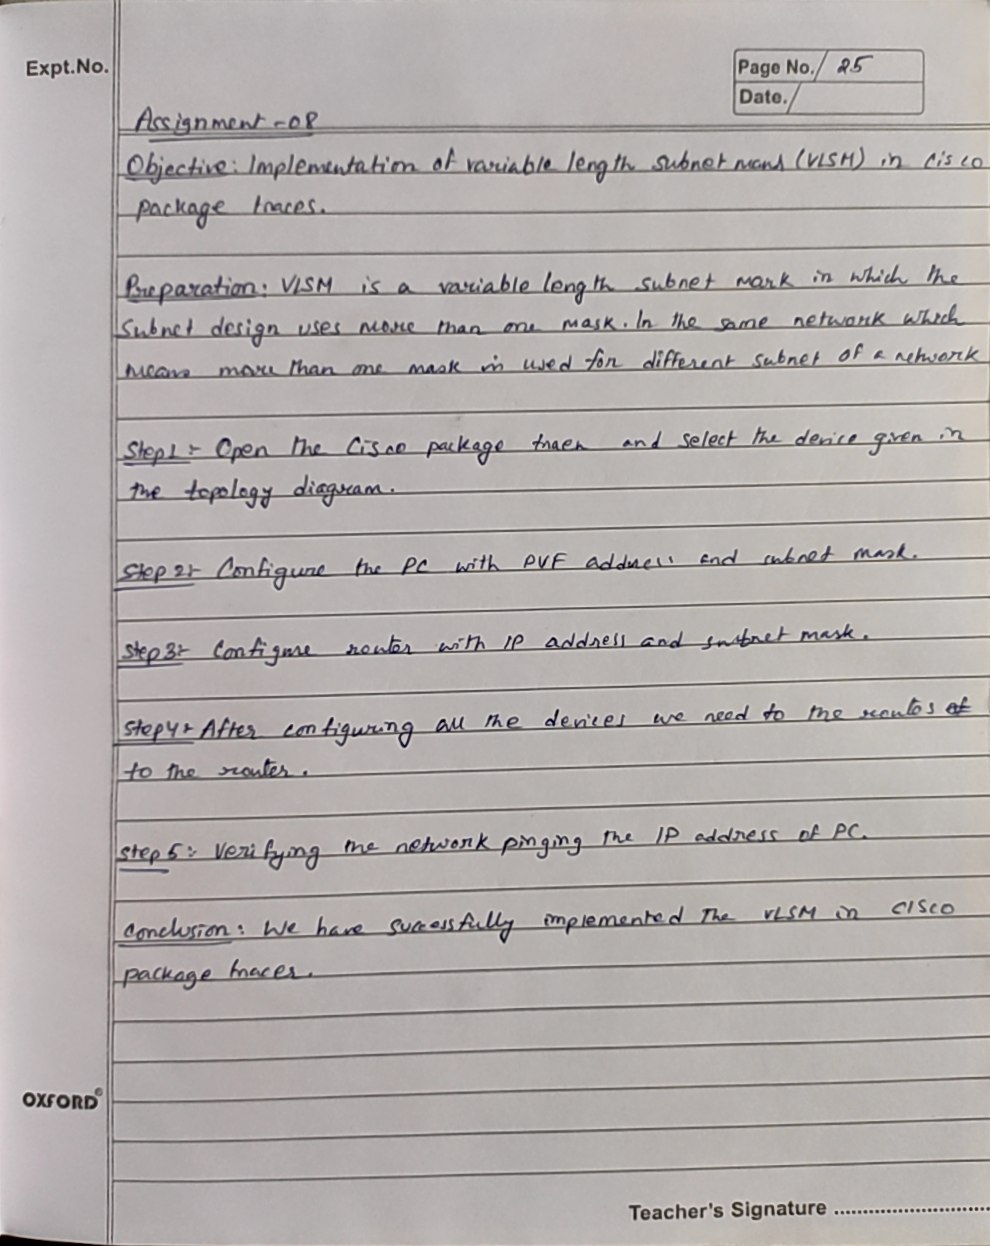 Expt.No.
Page No. 25
Date.
Assignment-08
Objective: Implementation of variable length subnet mans (VLSM) in cisco
package traces.
Preparation: VLSM is a variable length subnet mark in which the
Subnet design uses more than one mask. In the same network which
means more than one mask in used for different subnet of a network
Step1:- Open the Cisco package traen and select the device given in
the topology diagram.
Step2:- Configure the PC with PVF address and subnet mask.
Step3:- Configure router with IP address and subnet mask.
Step4:- After configuring all the devices we need to the routes
to the router.
Step 5:- Verifying the network pinging the IP address of PC.
Conclusion: We have successfully implemented The VLSM in CISCO
package traces.
OXFORD
Teacher's Signature ............................